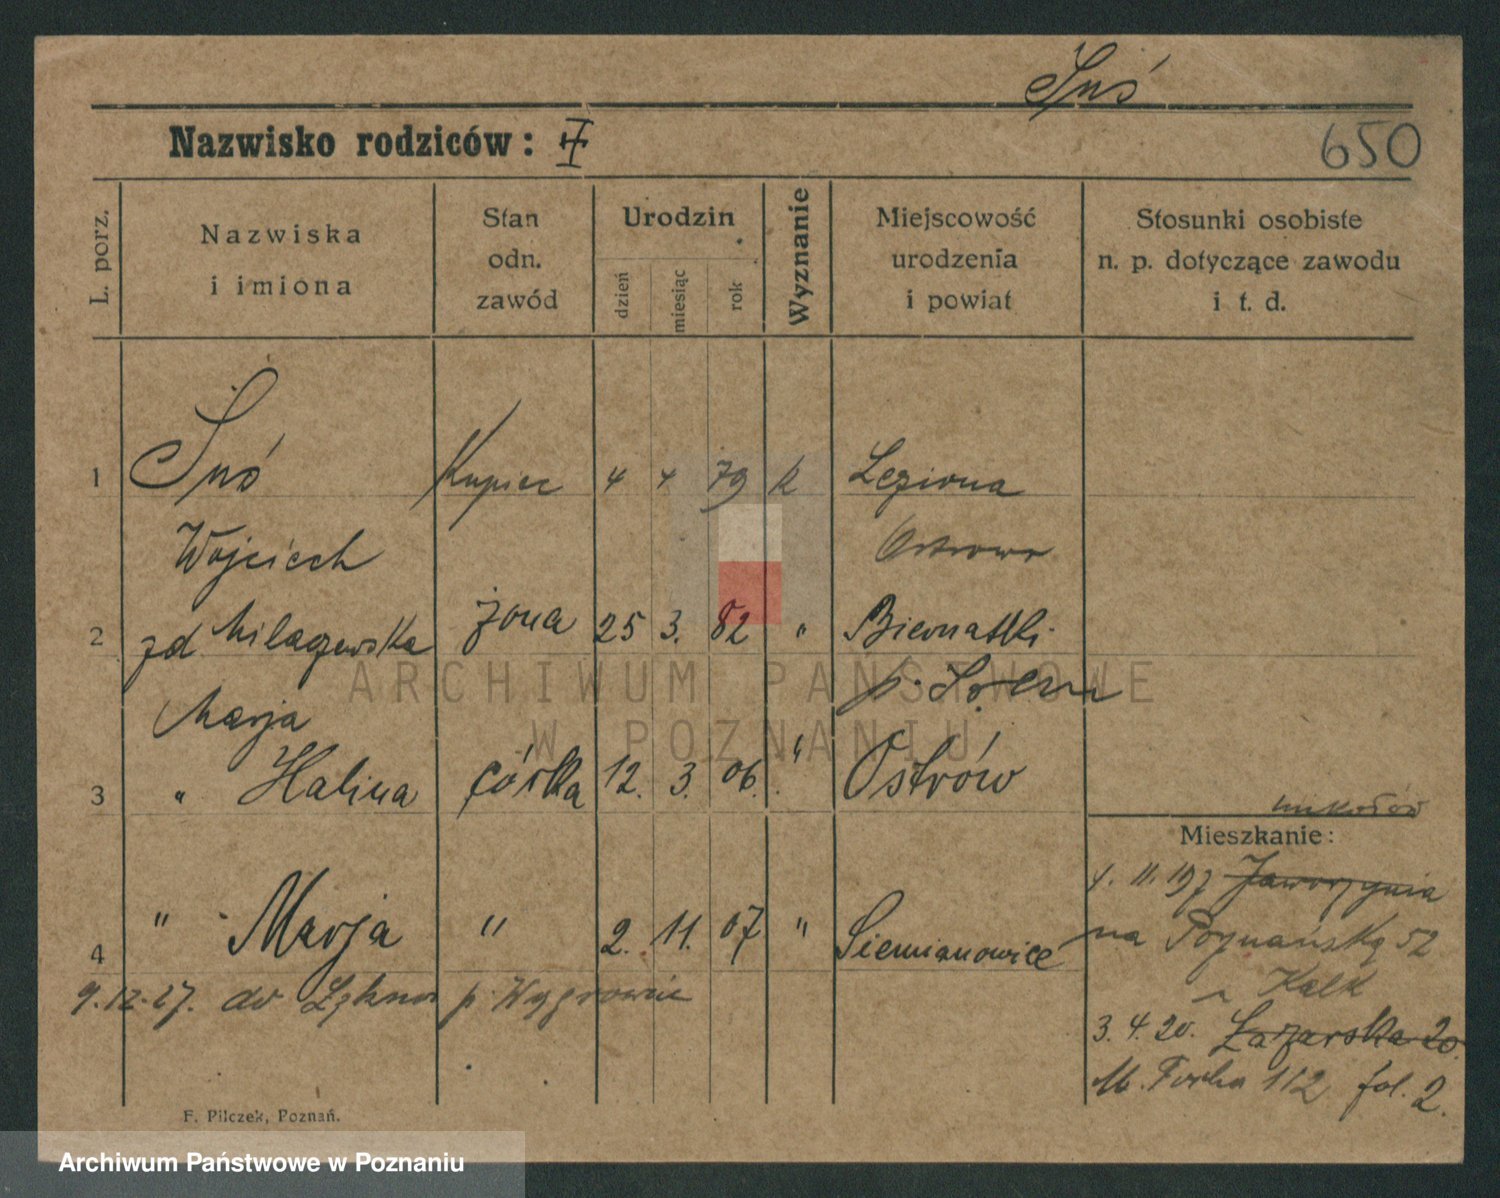 Śuś
Nazwisko rodziców: II
650
L. porz.
Nazwiska
i imiona
Stan
odn.
zawód
Urodzin
dzień
miesiąc
rok
Wyznanie
Miejscowość
urodzenia
i powiat
Stosunki osobiste
n. p. dotyczące zawodu
i t. d.
1 Kupiec 4 4 79 k
Wojciech Ostrowo
2 zd żona 25 3. 82 "
ARCHIWUM PAŃSTWOWE
W POZNANIU
Marja
3 " Halina córka 12. 3. 06. " Ostrów
Mieszkanie:
4. 11. 19
4 " Marja " 2. 11. 07 " Siemianowice
na Poznańską 52
9.12.27. do p. Wygrowiec
3. 4. 20. Łazarska 20.
M. Focha 112 fol. 2.
F. Pilczek, Poznań.
Archiwum Państwowe w Poznaniu